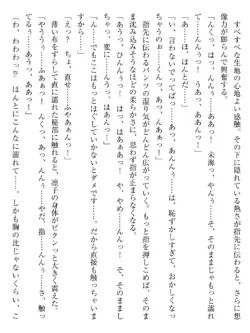 スベスベな生地の心地よい感触、その下に隠されている熱さが指先に伝わると、さらに想
像力が膨らんで興奮する。
「あっ、ほ、ほんとだ……」
「ん、言わないでってば……っあ、っは……、恥ずかしすぎて、おかしくなっ
ちゃうぞ……ふぁぁっ！　あっ……んんぅ……っあっ、未海っ、やんっ！」
指先に伝わるパンツの湿り気がどんどん広がっていく。もっと指を押しこめば、その
まま沈み込みそうなほどの柔らかさに、思わず指が止まらなくなる。
「あっ、ひんんぅっ……っはぁっ、あっ、や、やめ……んんっ！　そ、そのまましち
ゃっ、変に……んんぅっ、はぁんっ！」
「ん……でもここはもっとほぐしていかないとダメです……。だから直接も触っちゃいま
すから……」
「えっ？　ちょ、直せ……ふやぁぁっ！」
薄い布をずらして直に濡れた秘部に触れると、凛子の身体がビクンっと大きく震えた。
「やんぅっ……うう、ふあぁ……あっ！　んんっ……やだ、指……んんぅ……さ、触っ
て……んんぅっ、はぁぁっ！」
（わ、わわわっ!?　ほんとにこんなに濡れて……。しかも胸の比じゃないくらい、こ